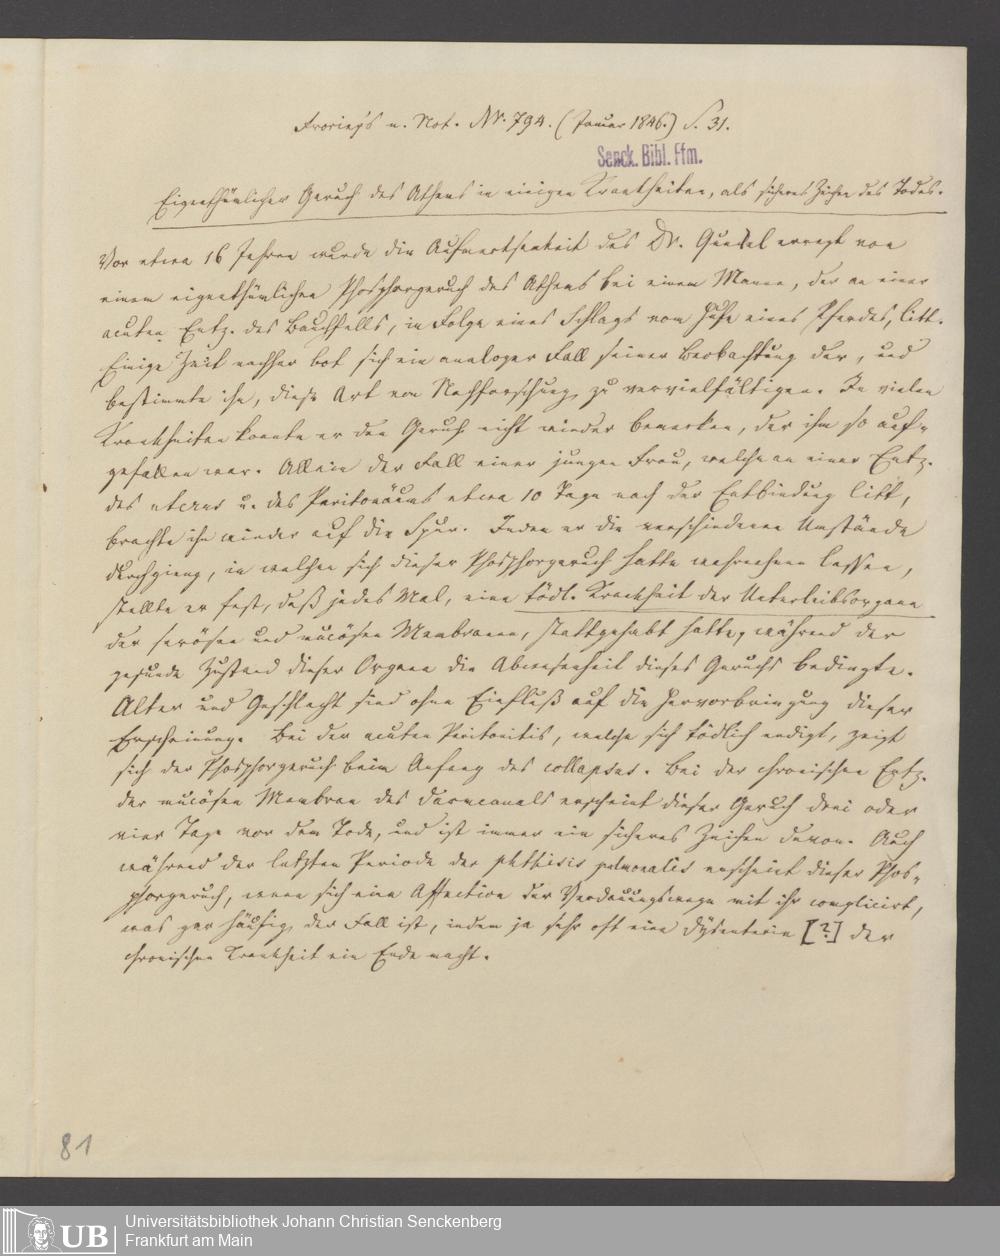 Froriep's n. Not. Nr. 794. (Januar 1846.) S. 31.
Senck. Bibl. Ffm.
Eigenthümlicher Geruch des Athems in einigen Krankheiten, als sicheres Zeichen des Todes.
Vor etwa 16 Jahren wurde die Aufmerksamkeit des Dr. erregt von
einem eigenthümlichen Phosphorgeruch des Athems bei einem Manne, der an einer
acuten Entz. des Bauchfells, in Folge eines Schlags vom Hufe eines Pferdes, litt.
Einige Zeit nachher bot sich ein analoger Fall seiner Beobachtung dar, und
bestimmte ihn, diese Art von Nachforschung zu vervielfältigen. In vielen
Krankheiten konnte er den Geruch nicht wieder bemerken, der ihm so auf-
gefallen war. Allein der Fall einer jungen Frau, welche an einer Entz.
des uterus u. des Peritonäums etwa 10 Tage nach der Entbindung litt,
brachte ihn wieder auf die Spur. Indem er die verschiedenen Umstände
durchgieng, in welchen sich dieser Phosphorgeruch hatte wahrnehmen lassen,
stellte er fest, daß jedes Mal, eine tödl. Krankheit der Unterleibsorgane
der serösen und mucösen Membranen, stattgehabt hatte, während der
gesunde Zustand dieser Organe die Abwesenheit dieses Geruchs bedingte.
Alter und Geschlecht sind ohne Einfluß auf die Hervorbringung dieser
Erscheinung. Bei der acuten Peritonitis, welche sich tödlich endigt, zeigt
sich der Phosphorgeruch beim Anfang des collapsus. Bei der chronischen Entz.
der mucösen Membran des Darmcanals erscheint dieser Geruch drei oder
vier Tage vor dem Tode, und ist immer ein sicheres Zeichen davon. Auch
während der letzten Periode der phthisis pulmonalis erscheint dieser Phos-
phorgeruch, wenn sich eine Affection der Verdauungswege mit ihr complicirt,
was gar häufig der Fall ist, indem ja sehr oft eine Dysenterie [?] der
chronischen Krankheit ein Ende macht.
81
UB
Universitätsbibliothek Johann Christian Senckenberg
Frankfurt am Main